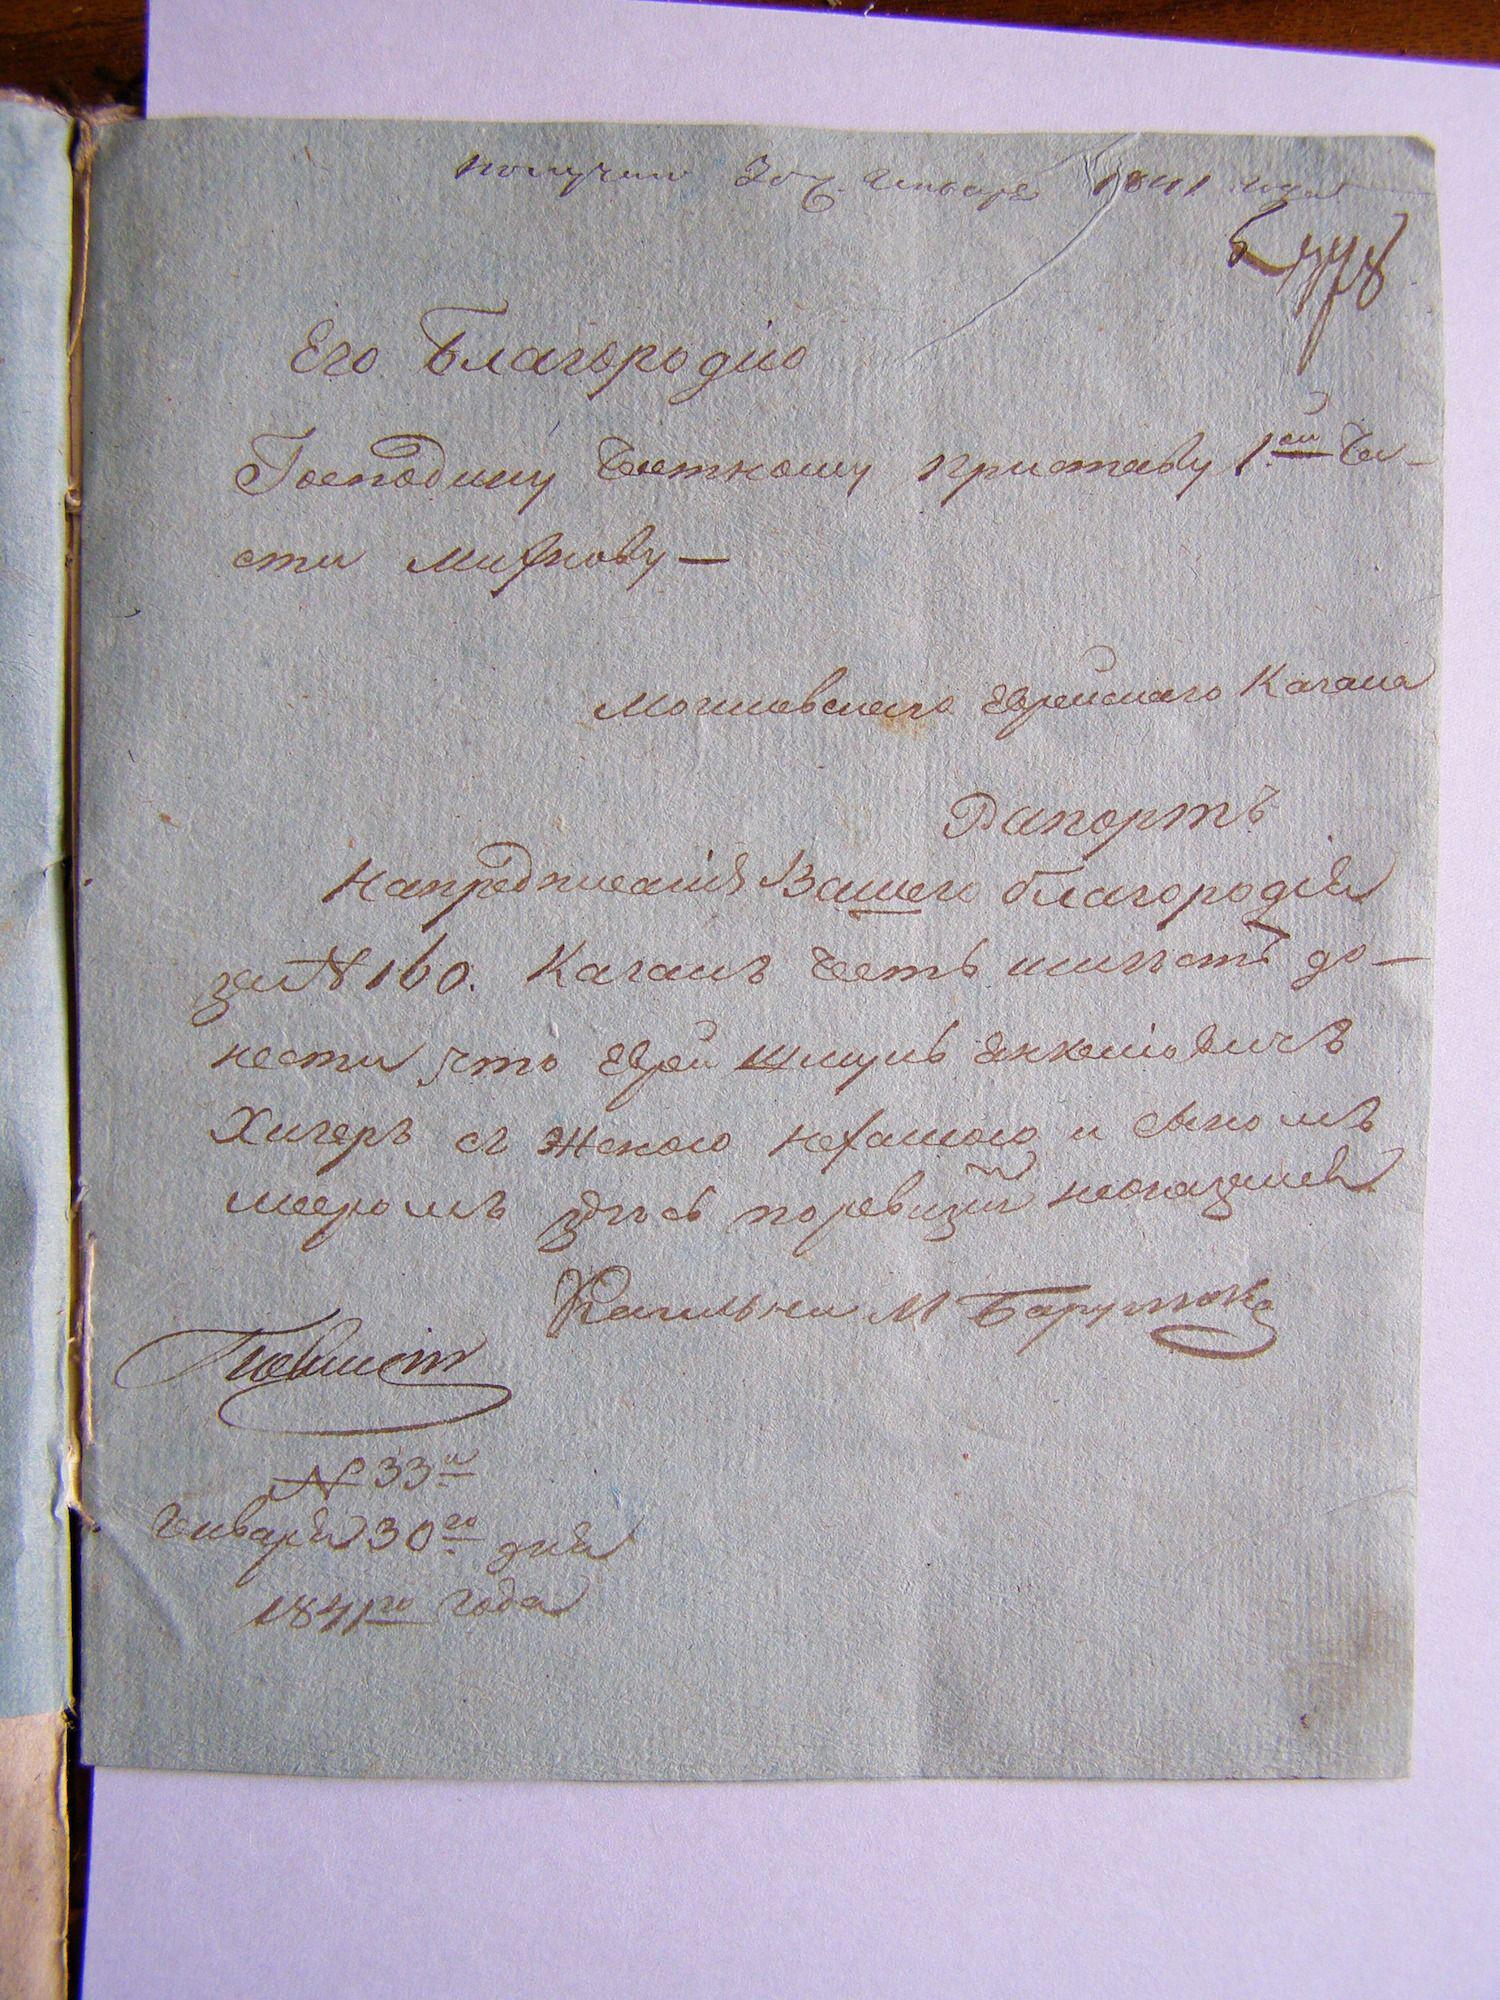 получено 30 Генваря 1841 года
Его Благородію
Господину Частному приставу 1.ой Ча-
сти Михнову —
Могилевскаго Еврейскаго Кагала
Рапортъ
Напредписанія Вашего благородія
за № 160. Кагалъ честь имѣетъ до-
нести, что Еврей Шмуль Янкелевичъ
Хигеръ съ женою Нехамою и сыномъ
мееромъ здѣсь поревизіи неоказался
Кагальный М Барут
№ 33й
Генваря 30го дня
1841го года